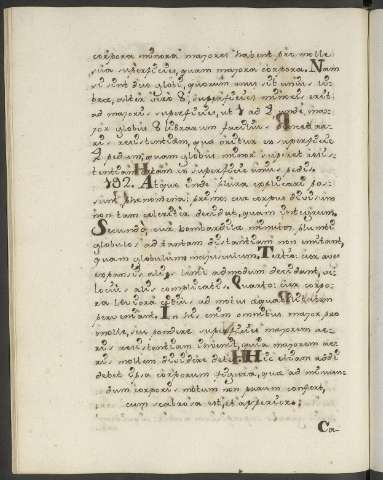 corpora minora majorem habent pro mole
sua superficiem, quam majora corpora. Nam
si sint duo globi, quorum unus sit unius li-
bræ, alter vero 8, superficies minoris erit
ad majoris superficiem, ut 1 ad 4 unde ma-
jor globus 8 librarum facilius aë-
ris resistentiam, quæ oritur ex superficie
4 pedum, quam globus minor superet resis-
tentiam ex superficie unius pedis.
192. Atque inde plura explicari pos-
sunt phenomena: primo: cur corpus divisum
non tam celeriter decidat, quam integrum.
Secundo: cur bombardulæ minimi plumbi
globulos ad tantam distantiam non emittant,
quam globulum majusculum. Tertio: cur aves
expansis alis lente admodum decidant, ve-
locius alis complicatis. Quarto: cur corpo-
ra leviora citius ad motus æquabilitatem
perveniant. In his enim omnibus major pro
mole, seu pondere superficies majorem aë-
ris resistentiam invenit, quia majorem aë-
ris molem dividere debet. Hic etiam addi
debet ipsa corporum figura, quæ ad minuen-
dum corporis motum non parum confert,
cum scabrosa sit, et asperior;
Ca-